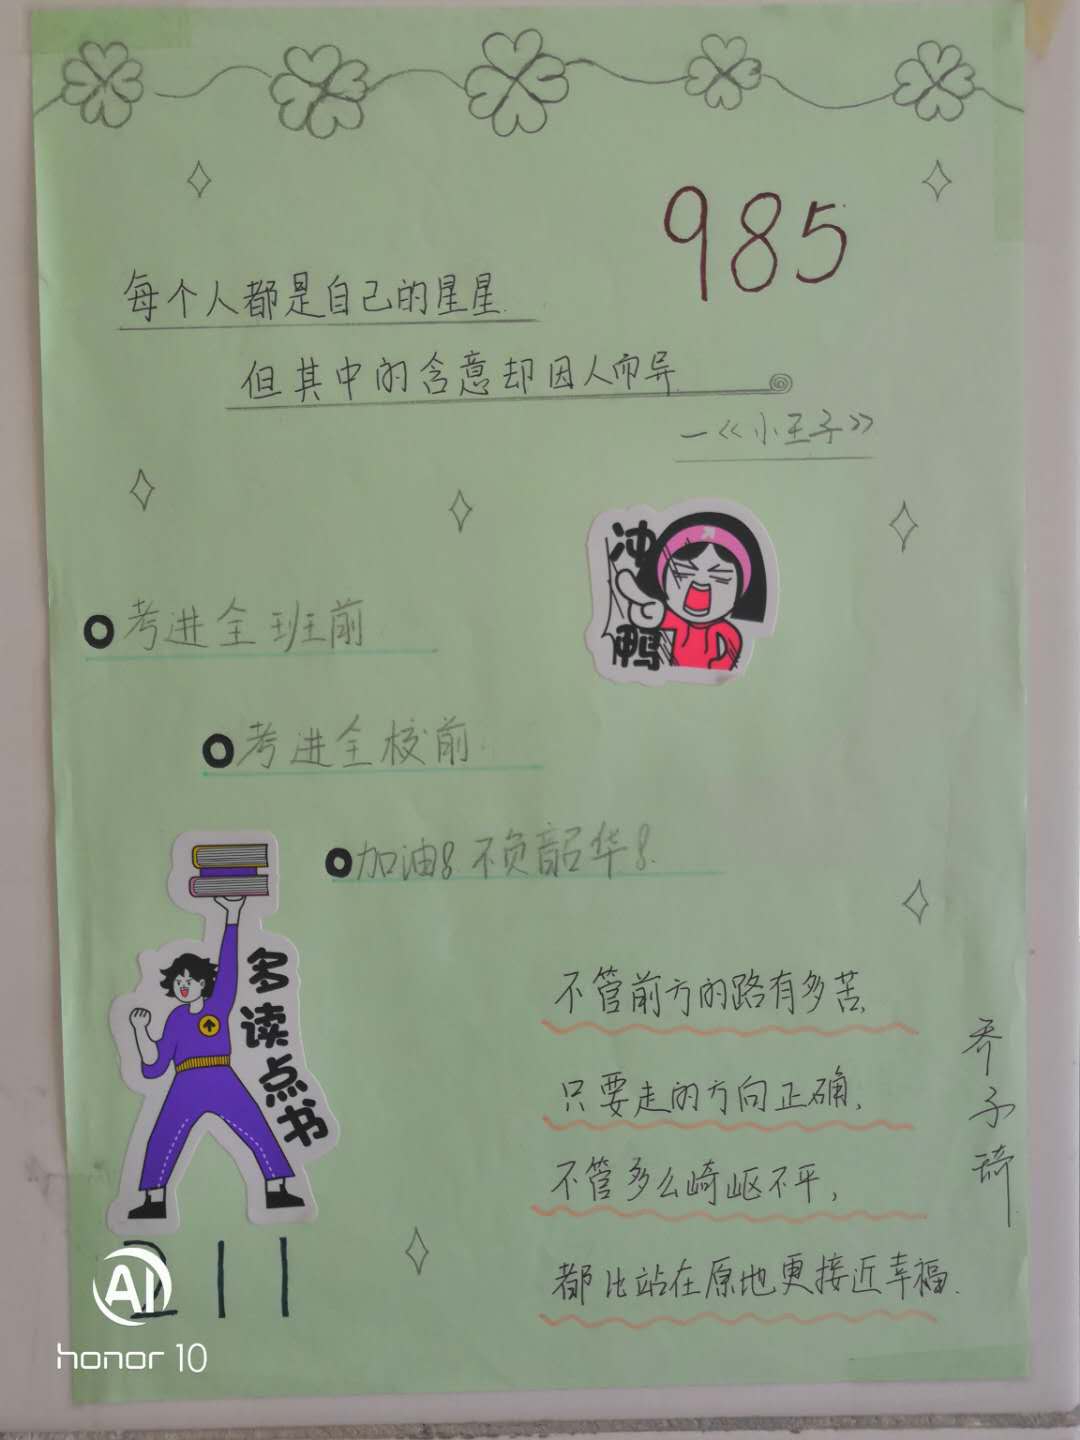 985
每个人都是自己的星星.
但其中的含意却因人而异.
—《小王子》
冲鸭
考进全班前
考进全校前.
加油!不负韶华!
多读点书
不管前方的路有多苦,
只要走的方向正确,
不管多么崎岖不平,
都比站在原地更接近幸福.
乔子琦
211
AI
honor 10